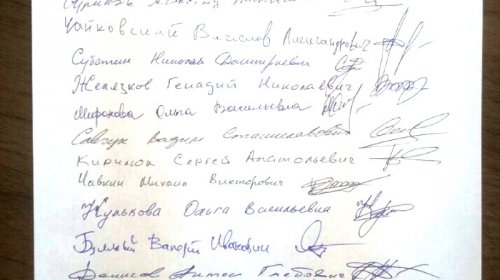 Чайковский Вячеслав Александрович
Субботин Николай Дмитриевич
Желязков Генадий Николаевич
Мифанова Ольга Васильевна
Савчук Вадим Станиславович
Кирилюк Сергей Анатольевич
Чавкин Михаил Викторович
Жулькова Ольга Васильевна
Иванович
Денисов Антон Глебович